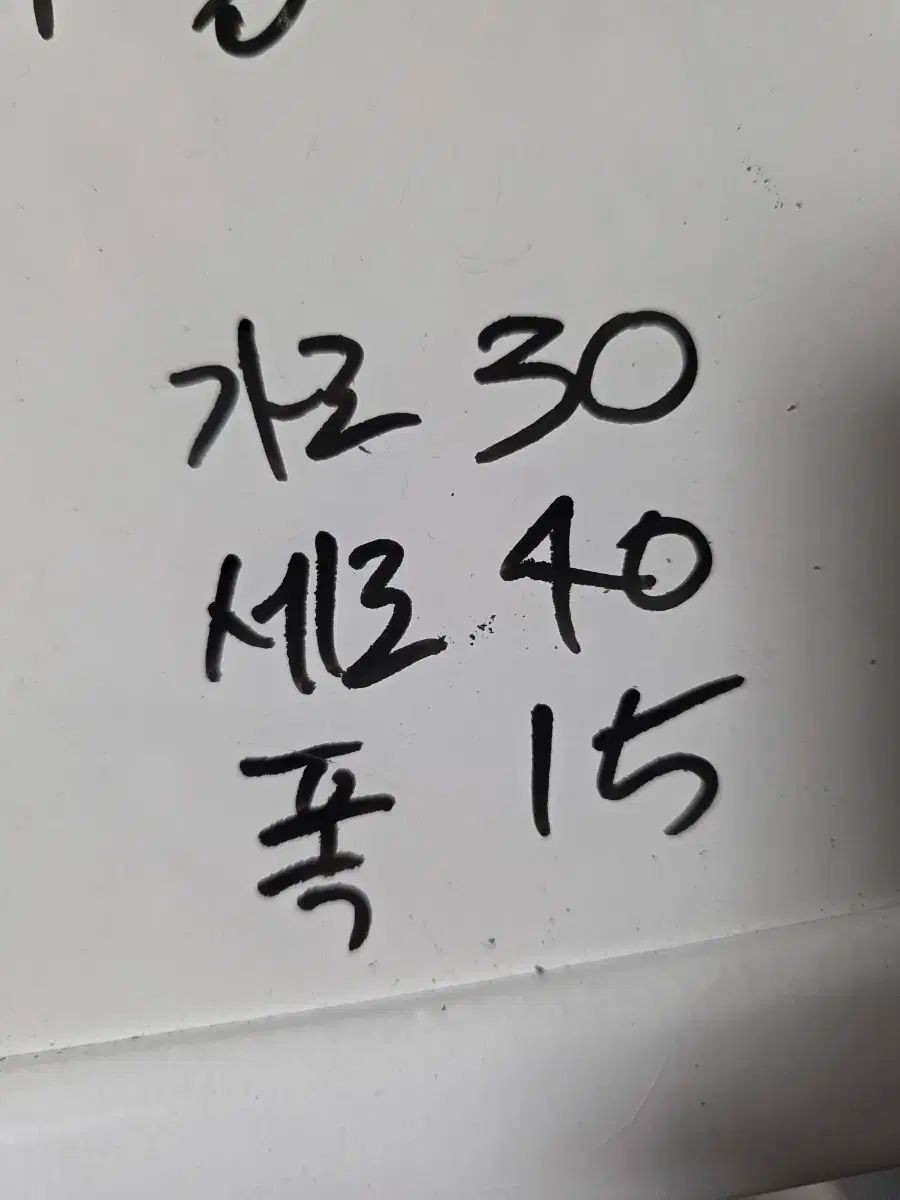 가로 30
세로 40
폭 15